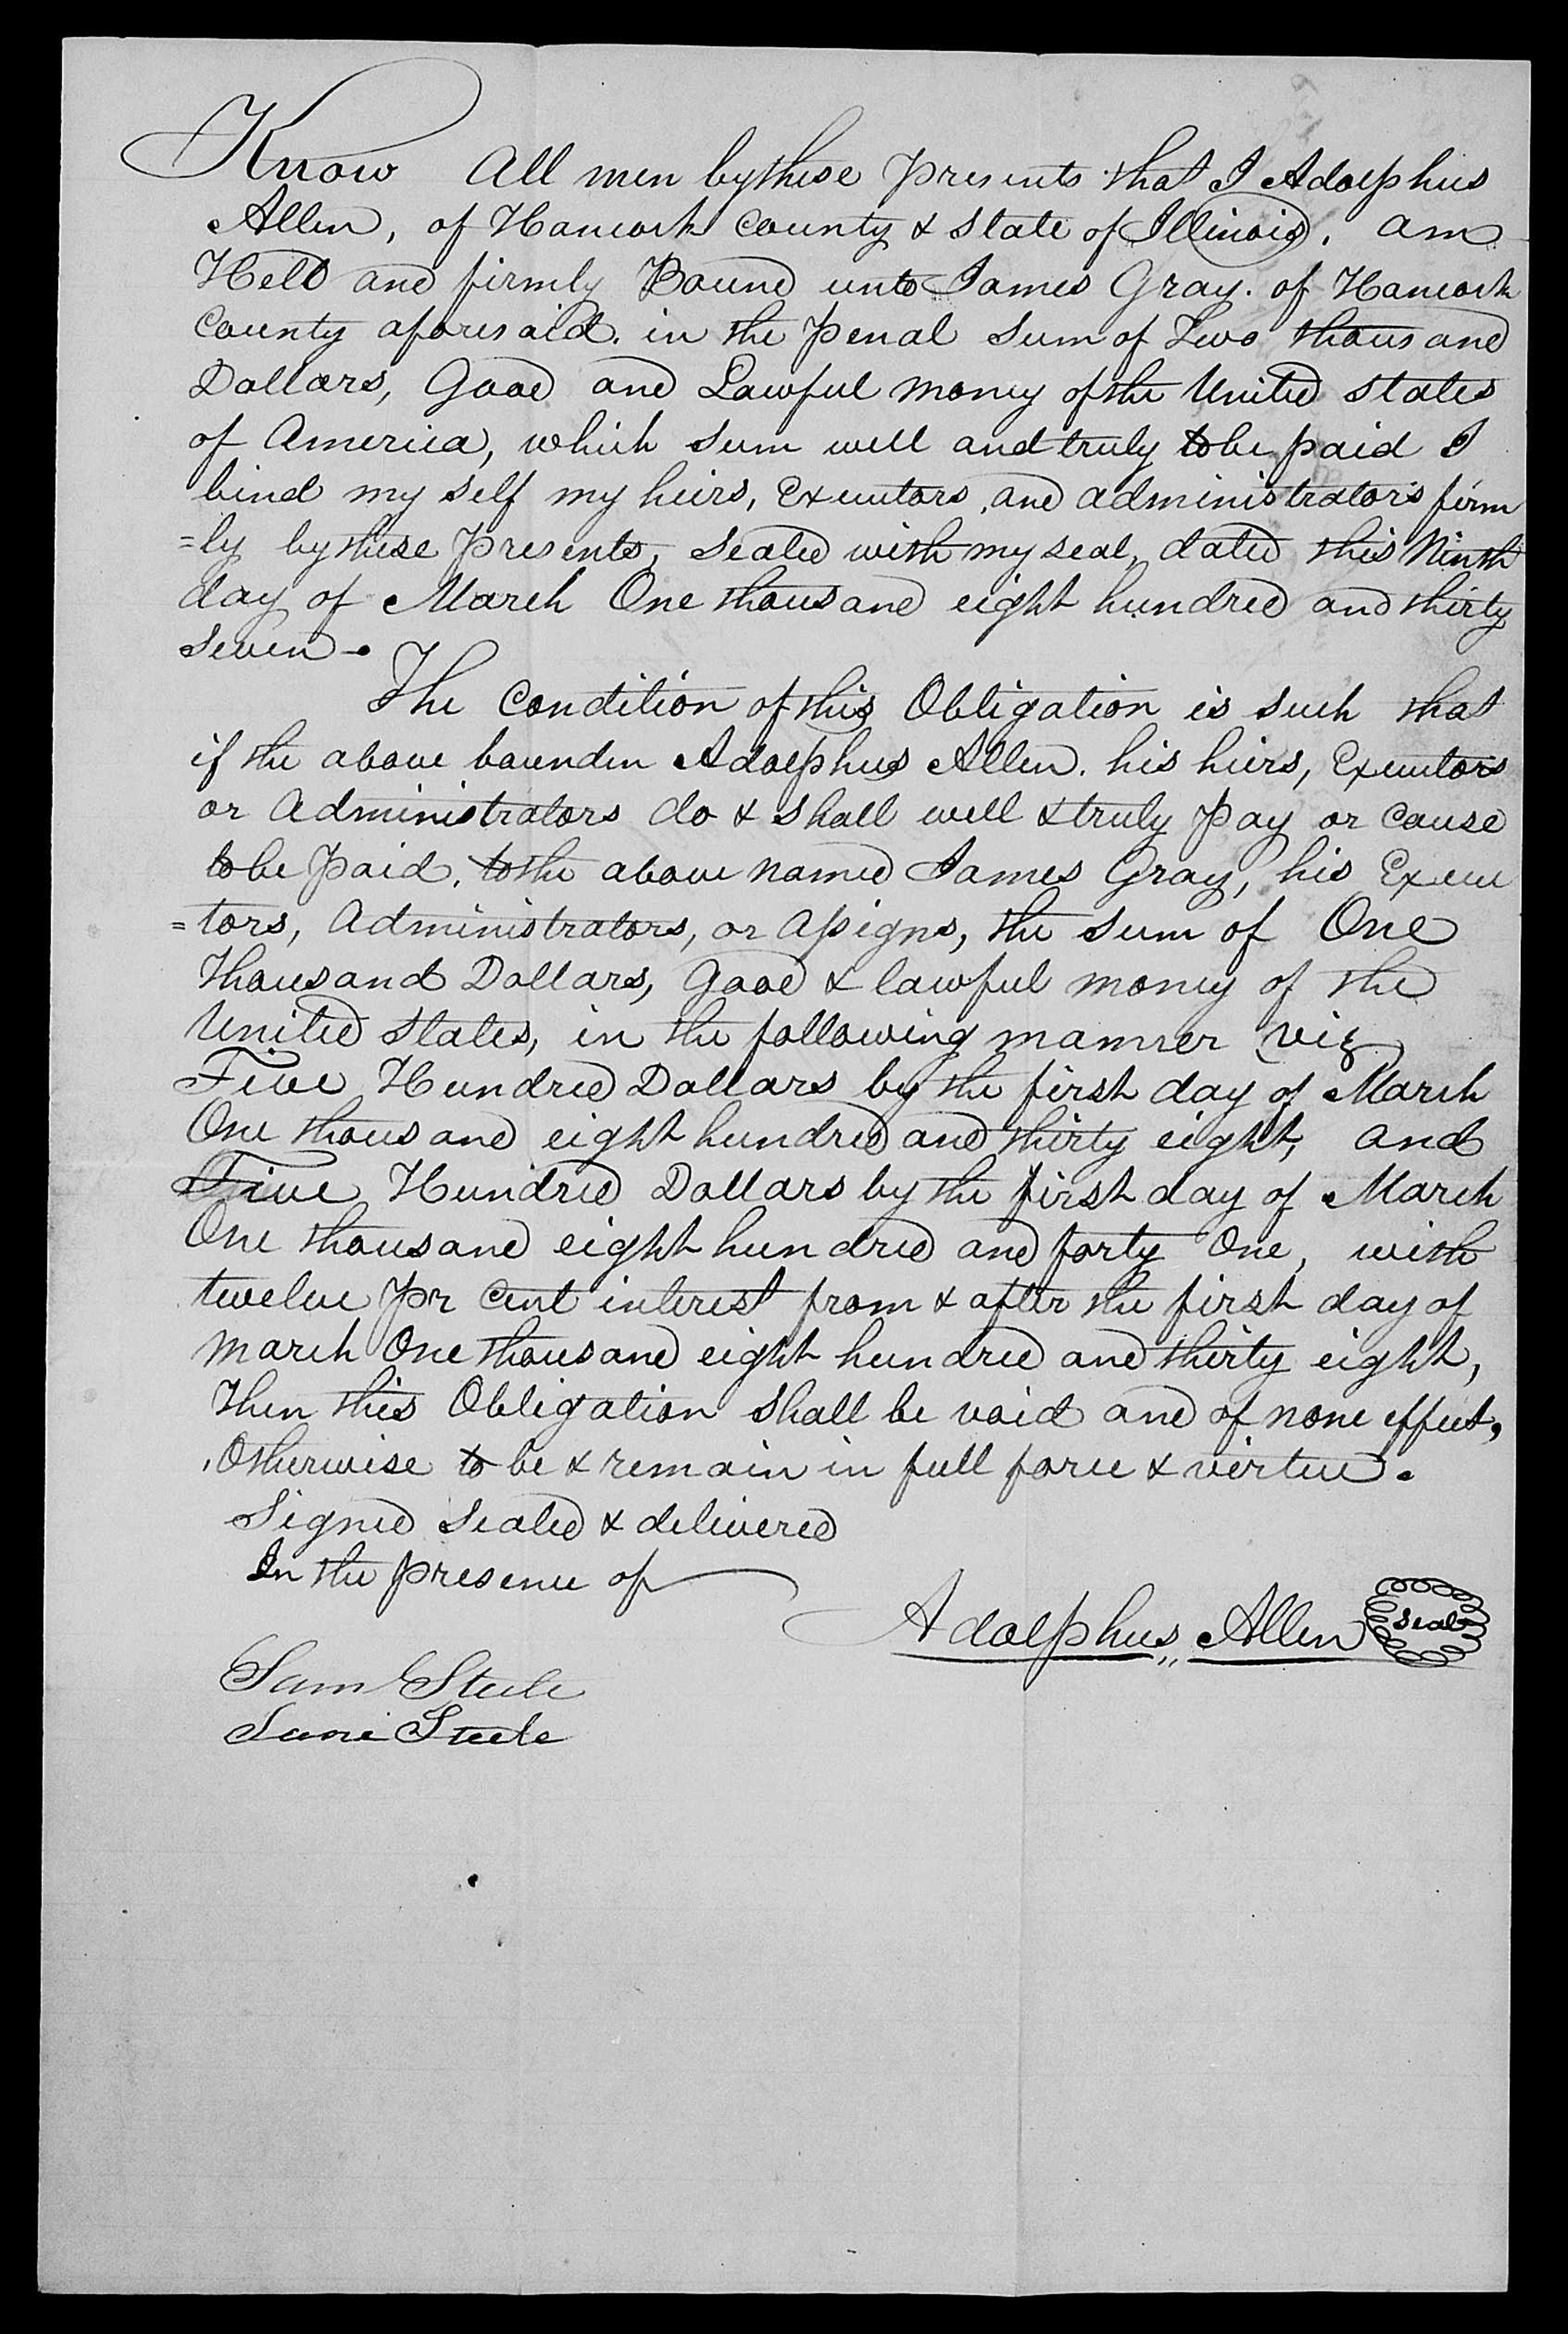 Know All men by these Presents that I Adolphus
Allen, of Hancock County & State of Illinois. am
Held and firmly Bound unto James Gray. of Hancock
County aforesaid. in the Penal Sum of Two thousand
Dollars, Good and Lawful money of the United States
of America, which Sum well and truly to be paid I
bind my self my heirs, Executors, and administrators firm
=ly by these Presents, Sealed with my seal, dated this Ninth
day of March One thousand eight hundred and thirty
Seven -.
The Condition of this Obligation is such that
if the above bounden Adolphus Allen. his hiers, Executors
or Administrators do & shall well & truly Pay or Cause
to be Paid. to the above named James Gray, his Execu
=tors, Administrators, or Assigns, the Sum of One
Thousand Dollars, Good & lawful money of the
United States, in the following manner viz
Five Hundred Dollars by the first day of March
One thousand eight hundred and thirty eight, and
Five Hundred Dollars by the first day of March
One thousand eight hundred and forty One, with
twelve Pr Cent interest from & after the first day of
March One thousand eight hundred and thirty eight,
Then this Obligation Shall be void and of none effect,
Otherwise to be & remain in full force & virtue.
Signed Sealed & delivered
In the Presence of
Adolphus Allen Seal
Sam Steele
Steele